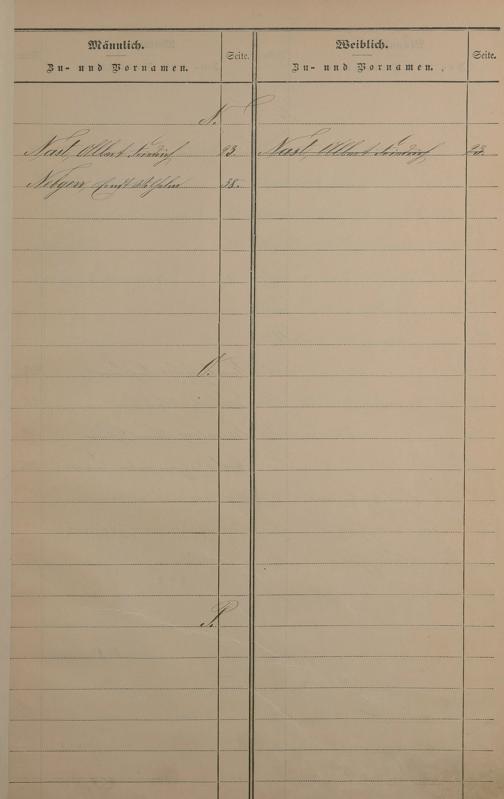 Männlich.
Zu- und Vornamen.
Seite.
Weiblich.
Zu- und Vornamen.
Seite.
N.
Albert Friedrich 23.
Albert Friedrich 23.
Ernst Wilhelm 38.
O.
P.